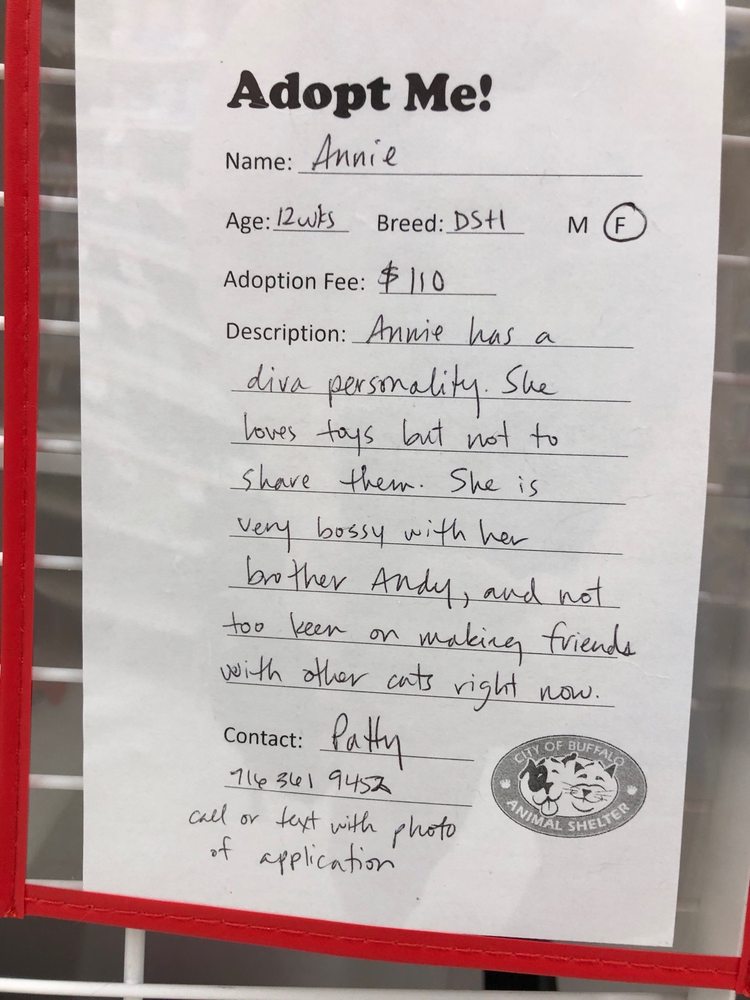 Adopt Me!
Name: Annie
Age: 12wks Breed: DSH M F
Adoption Fee: $110
Description: Annie has a
diva personality. She
loves toys but not to
share them. She is
very bossy with her
brother Andy, and not
too keen on making friends
with other cats right now.
Contact: Patty
716 361 9452
call or text with photo
of application
CITY OF BUFFALO
ANIMAL SHELTER